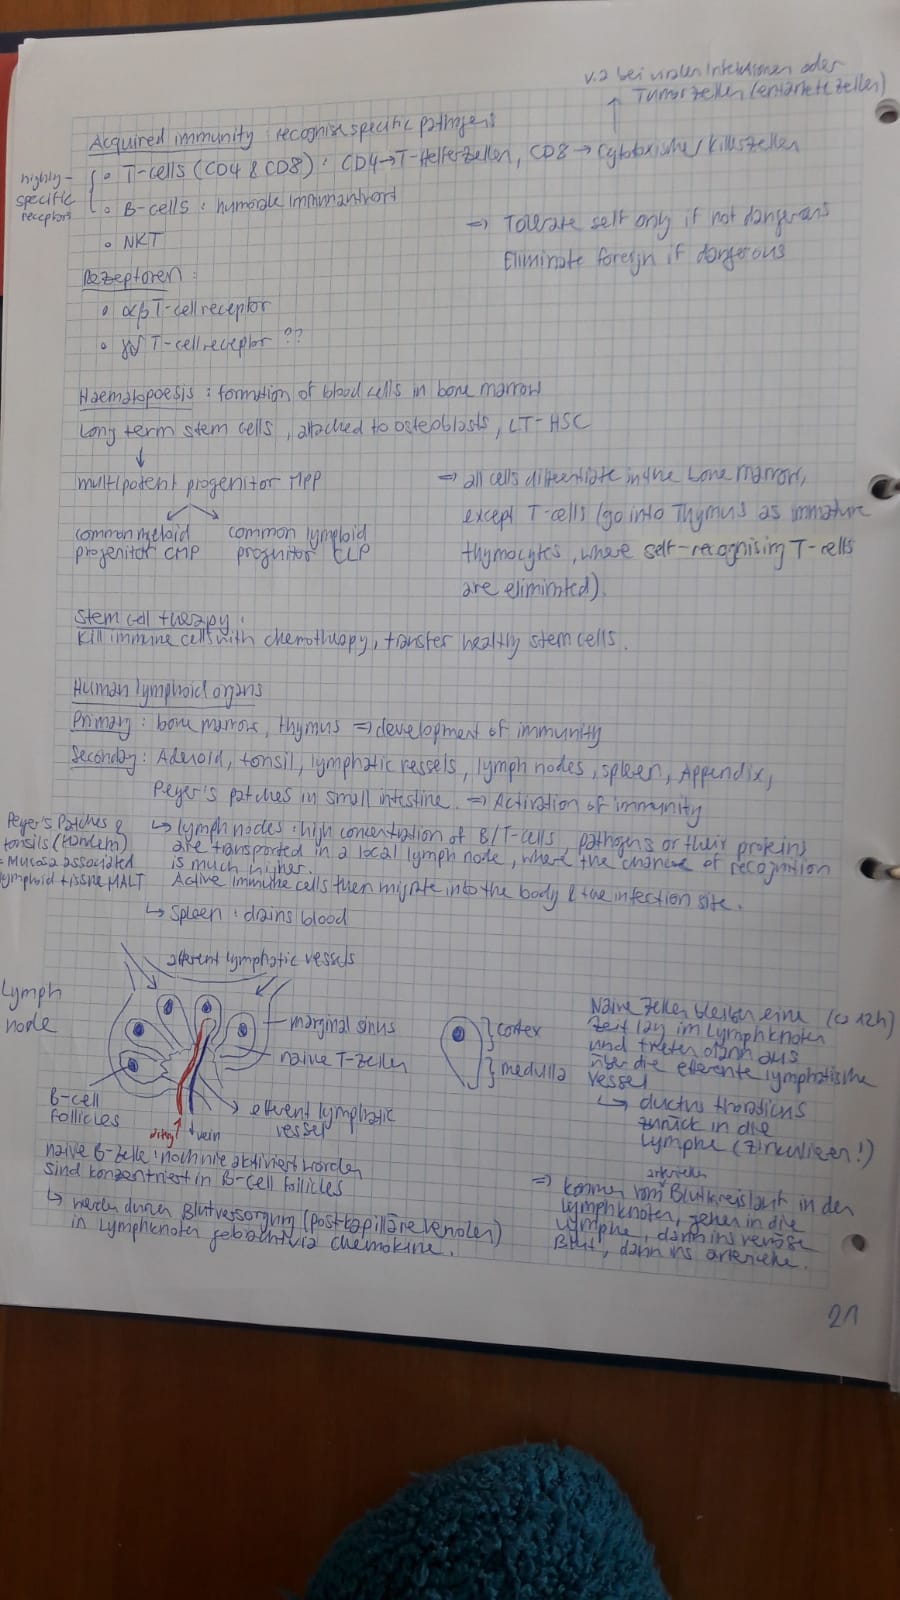 v.a bei viralen Infektionen oder
Tumorzellen (entartete Zellen)
Acquired immunity : recognise specific pathogens
highly-
specific
receptors
• T-cells (CD4 & CD8) : CD4→T-Helferzellen, CD8→Cytotoxische/Killerzellen
• B-cells : humorale Immunantwort
• NKT
⇒ Tolerate self only if not dangerous
Eliminate foreign if dangerous
Rezeptoren :
• αβ T-cell receptor
• γδ T-cell receptor ??
Haematopoesis : formation of blood cells in bone marrow
Long term stem cells, attached to osteoblasts, LT-HSC
↓
multipotent progenitor MPP
common myeloid
progenitor CMP
common lymphoid
progenitor CLP
⇒ all cells differentiate in the bone marrow,
except T-cells (go into Thymus as immature
thymocytes, where self-recognising T-cells
are eliminated).
Stem cell therapy :
Kill immune cells with chemotherapy, transfer healthy stem cells.
Human lymphoid organs
Primary : bone marrow, thymus ⇒ development of immunity
Secondary : Adenoid, tonsil, lymphatic vessels, lymph nodes, spleen, Appendix,
Peyer's patches in small intestine. ⇒ Activation of immunity
Peyer's Patches &
tonsils (Mandeln)
= Mucosa associated
lymphoid tissue MALT
↳ Lymph nodes : high concentration of B/T-cells, pathogens or their proteins
are transported in a local lymph node, where the chance of recognition
is much higher.
Active immune cells then migrate into the body & the infection site.
↳ Spleen : drains blood
Lymph
node
afferent lymphatic vessels
marginal sinus
naive T-Zellen
efferent lymphatic
vessel
B-cell
follicles
artery
vein
cortex
medulla
naive B-Zelle : noch nie aktiviert worden
sind konzentriert in B-cell follicles
↳ werden durch Blutversorgung (postkapilläre venolen)
in Lymphknoten gebracht via chemokine.
Naive Zellen bleiben eine (ca 12h)
Zeit lang im Lymphknoten
und treten dann aus
über die efferente lymphatische
vessel
↳ ductus thoracicus
zurück in die
Lymphe (zirkulieren!)
arteriellen
⇒ kommen vom Blutkreislauf in den
Lymphknoten, gehen in die
Lymphe, dann ins venöse
Blut, dann ins arterielle.
21